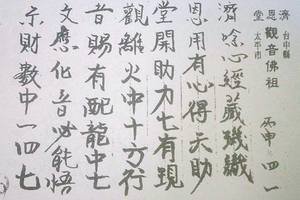 濟恩堂
台中縣
太平市
觀音佛祖
丙申 四 一
濟唸心經藏璣
恩用有心得天助
堂開助力七有現
觀離火中十方行
音賜有配龍中七
文應化音必能悟
示財數中一四七